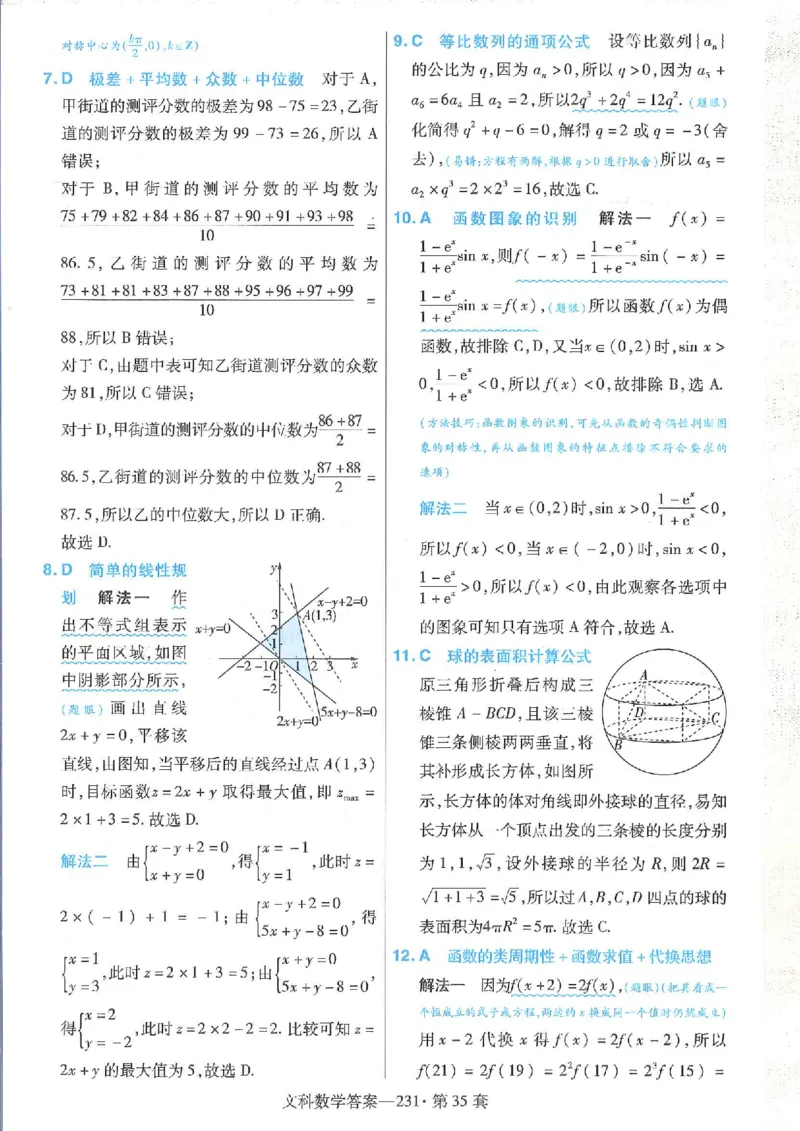 对称中心为(kπ/2,0),k∈Z)
7.D 极差+平均数+众数+中位数 对于A,
甲街道的测评分数的极差为98-75=23,乙街
道的测评分数的极差为99-73=26,所以A
错误;
对于B,甲街道的测评分数的平均数为
(75+79+82+84+86+87+90+91+93+98)/10 =
86.5,乙街道的测评分数的平均数为
(73+81+81+83+87+88+95+96+97+99)/10 =
88,所以B错误;
对于C,由题中表可知乙街道测评分数的众数
为81,所以C错误;
对于D,甲街道的测评分数的中位数为(86+87)/2=
86.5,乙街道的测评分数的中位数为(87+88)/2=
87.5,所以乙的中位数大,所以D正确.
故选D.
8.D 简单的线性规
划 解法一 作
出不等式组表示
的平面区域,如图
中阴影部分所示,
(题眼)画出直线
2x+y=0,平移该
y
x-y+2=0
A(1,3)
x+y=0
3
2
1
-2 -1 O 1 2 3 x
-1
-2
5x+y-8=0
2x+y=0
直线,由图知,当平移后的直线经过点A(1,3)
时,目标函数z=2x+y取得最大值,即z_max=
2×1+3=5.故选D.
解法二 由{x-y+2=0, x+y=0,得{x=-1, y=1,此时z=
2×(-1)+1=-1;由{x-y+2=0, 5x+y-8=0,得
{x=1, y=3,此时z=2×1+3=5;由{x+y=0, 5x+y-8=0,
得{x=2, y=-2,此时z=2×2-2=2.比较可知z=
2x+y的最大值为5,故选D.
9.C 等比数列的通项公式 设等比数列{aₙ}
的公比为q,因为aₙ>0,所以q>0,因为a₅+
a₆=6a₄且a₂=2,所以2q³+2q⁴=12q².(题眼)
化简得q²+q-6=0,解得q=2或q=-3(舍
去),(易错:方程有两解,根据q>0进行取舍)所以a₅=
a₂×q³=2×2³=16,故选C.
10.A 函数图象的识别 解法一 f(x)=
(1-eˣ)/(1+eˣ)sin x,则f(-x)=(1-e⁻ˣ)/(1+e⁻ˣ)sin(-x)=
(1-eˣ)/(1+eˣ)sin x=f(x),(题眼)所以函数f(x)为偶
函数,故排除C,D,又当x∈(0,2)时,sin x>
0,(1-eˣ)/(1+eˣ)<0,所以f(x)<0,故排除B,选A.
(方法技巧:函数图象的识别,可先从函数的奇偶性判断图
象的对称性,再从函数图象的特征点排除不符合要求的
选项)
解法二 当x∈(0,2)时,sin x>0,(1-eˣ)/(1+eˣ)<0,
所以f(x)<0,当x∈(-2,0)时,sin x<0,
(1-eˣ)/(1+eˣ)>0,所以f(x)<0,由此观察各选项中
的图象可知只有选项A符合,故选A.
11.C 球的表面积计算公式
原三角形折叠后构成三
棱锥A-BCD,且该三棱
锥三条侧棱两两垂直,将
其补形成长方体,如图所
A
D
C
B
示,长方体的体对角线即外接球的直径,易知
长方体从一个顶点出发的三条棱的长度分别
为1,1,√3,设外接球的半径为R,则2R=
√(1+1+3)=√5,所以过A,B,C,D四点的球的
表面积为4πR²=5π.故选C.
12.A 函数的类周期性+函数求值+代换思想
解法一 因为f(x+2)=2f(x),(题眼)(把其看成一
个恒成立的式子或方程,两边的x换成同一个值时仍然成立)
用x-2代换x得f(x)=2f(x-2),所以
f(21)=2f(19)=2²f(17)=2³f(15)=
文科数学答案—231·第35套